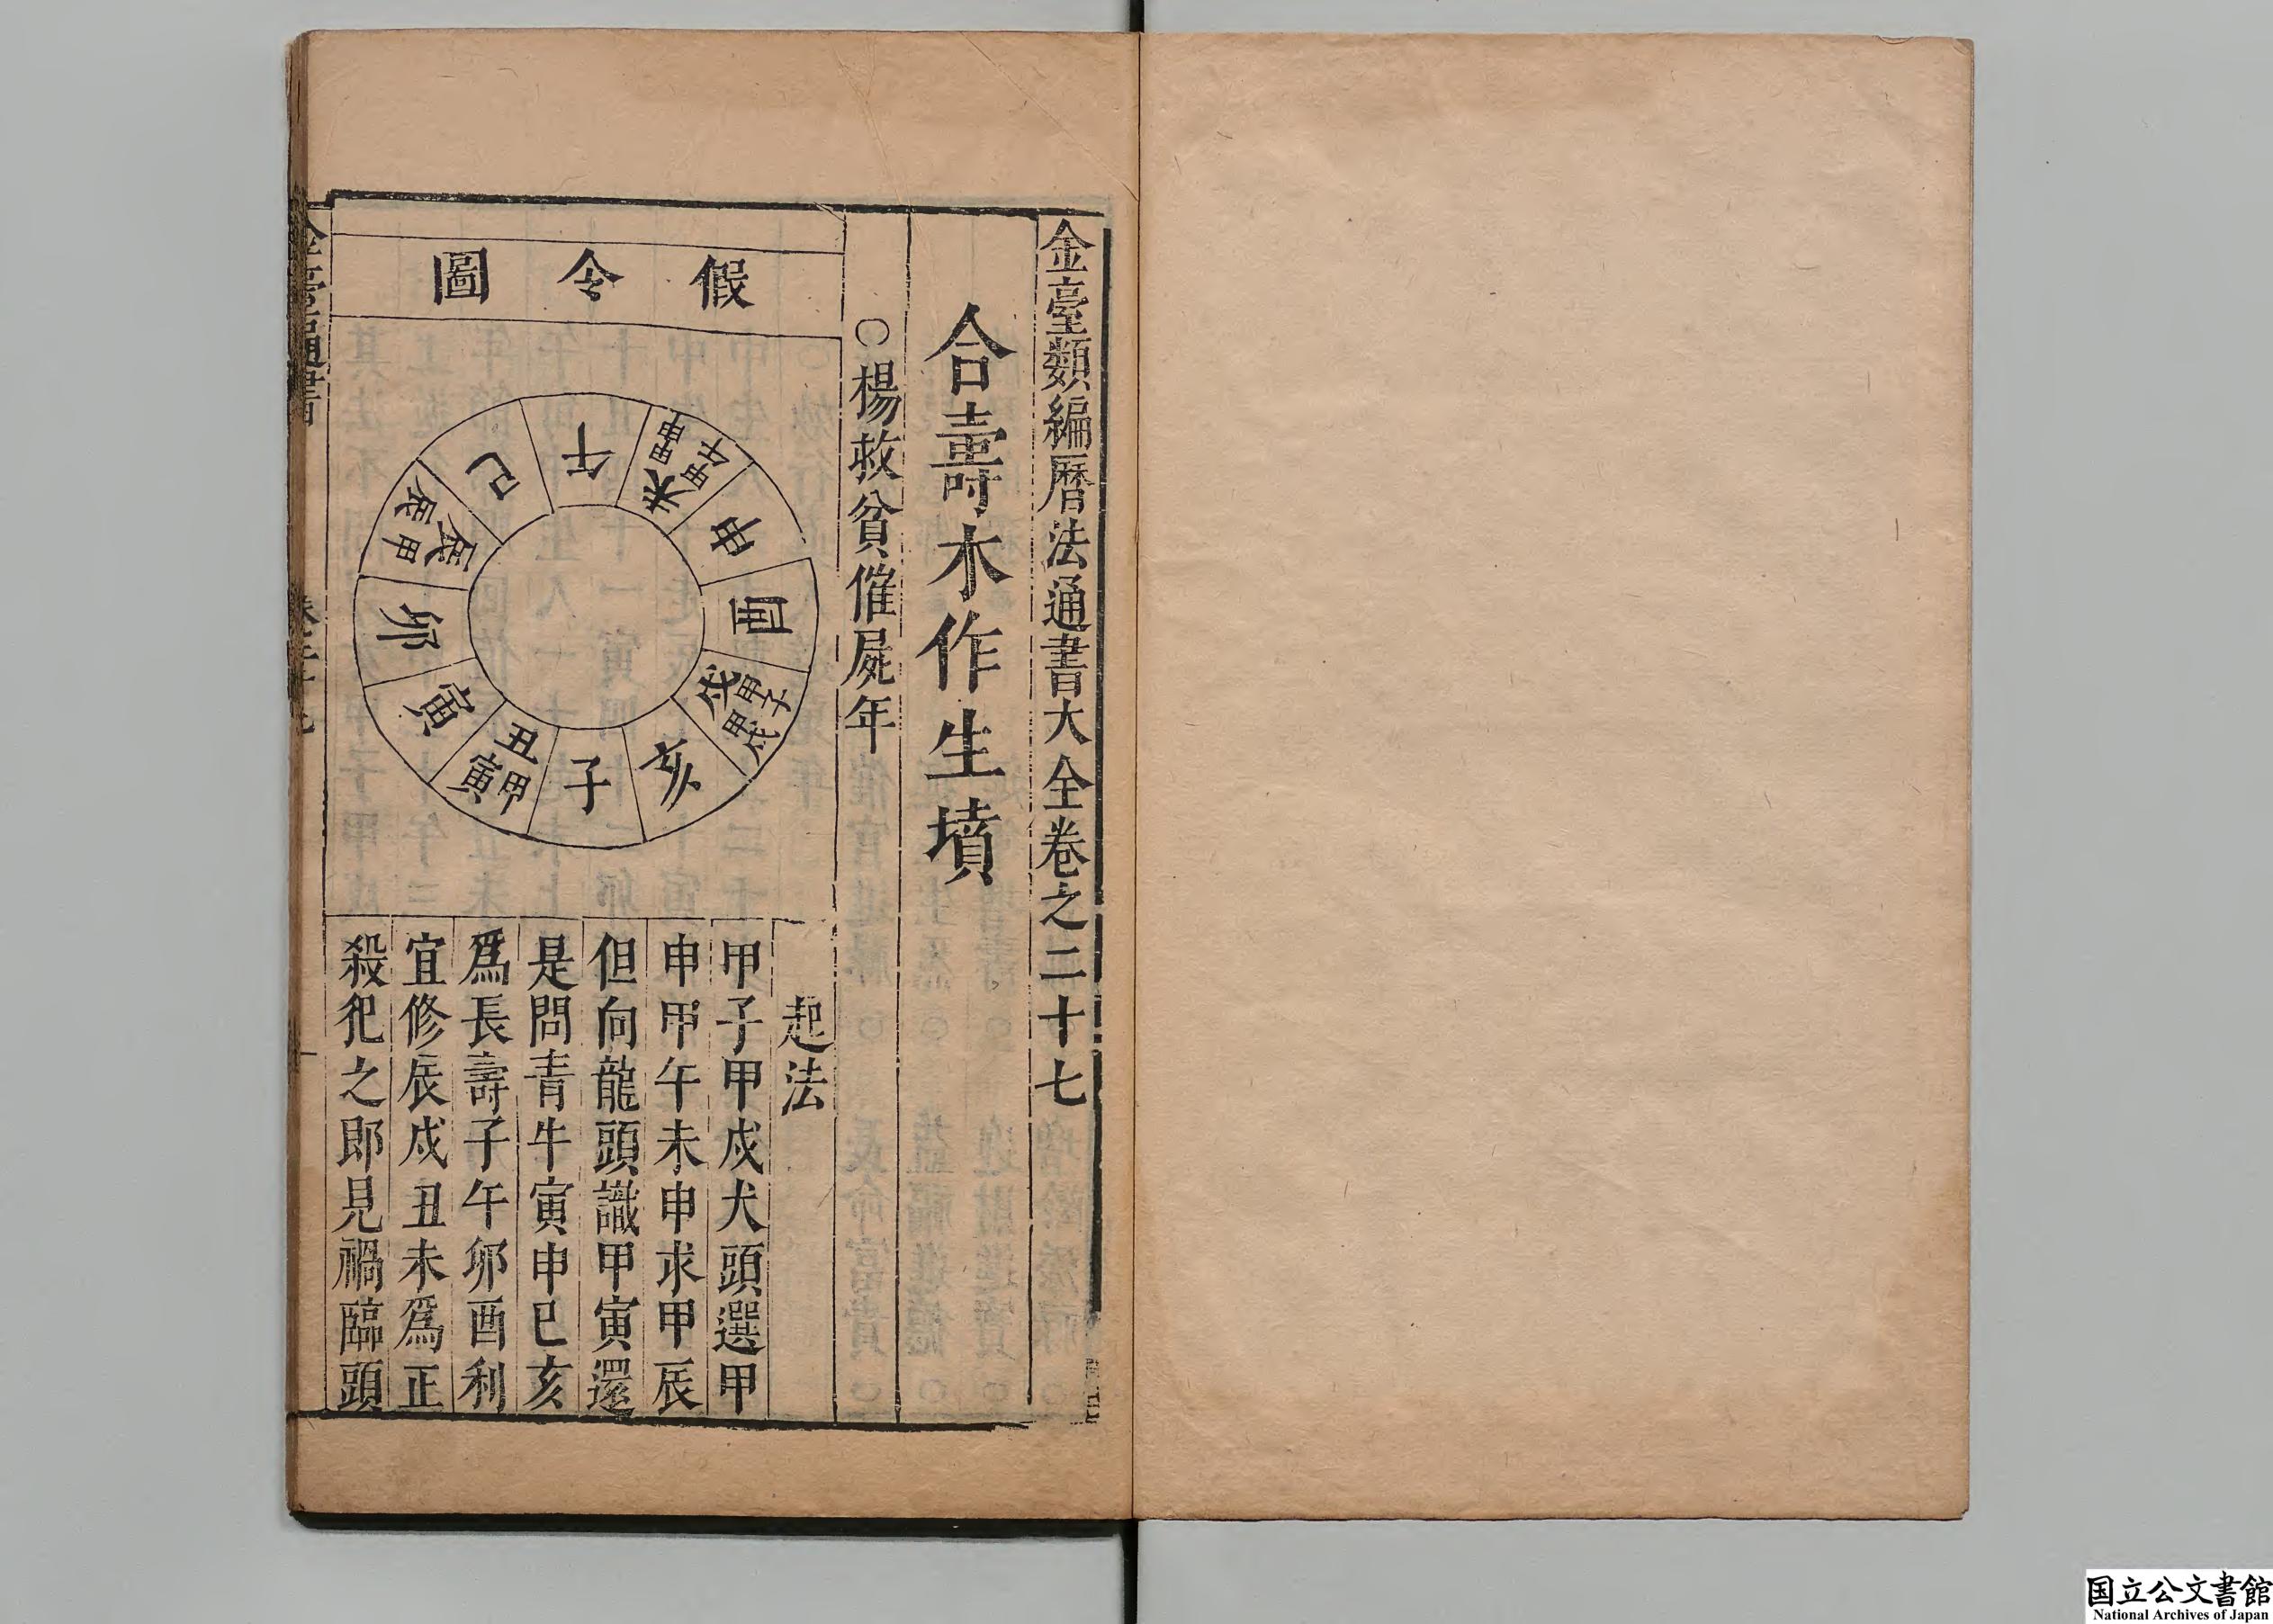 金臺類編曆法通書大全卷之二十七
合壽木作生墳
○楊救貧催屍年
假令圖
午
未 甲午 甲申
申
酉
戌 甲子 甲戌
亥
子
丑 甲寅
寅
卯
辰 甲辰
巳
起法
甲子甲戌犬頭選甲
申甲午未申求甲辰
但向龍頭識甲寅還
是問青牛寅申巳亥
爲長壽子午卯酉利
宜修辰戌丑未爲正
殺犯之即見禍臨頭
金臺通書
国立公文書館
National Archives of Japan